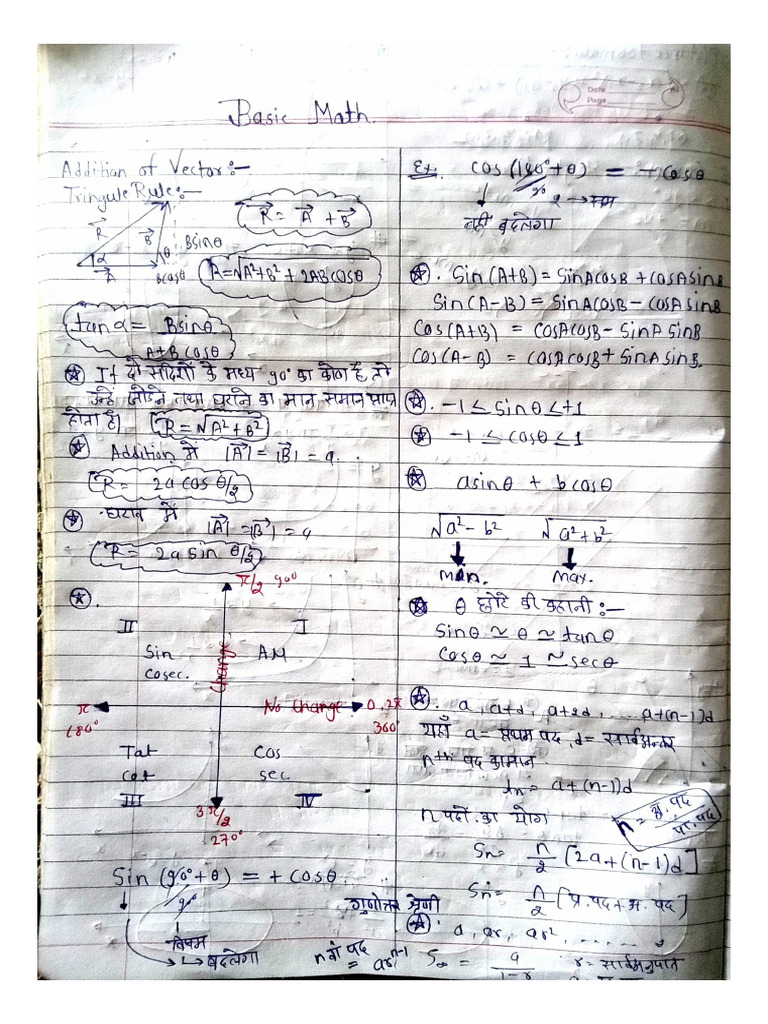 Date
Page
Basic Math.
Addition of Vector:-
Tringule Rule:-
R⃗ = A⃗ + B⃗
R⃗
B⃗
Bsinθ
α
θ
A⃗
Bcosθ
R=√A²+B²+2ABcosθ
tanα= Bsinθ
A+Bcosθ
If दो सदिशों के मध्य 90° का कोण है, तो
उन्हें जोड़ने तथा घटाने का मान समान प्राप्त
होता है। R=√A²+B²
Addition में |A⃗|=|B⃗|=a.
R= 2a cos θ/2
घटाने में |A⃗|=|B⃗|=a
R= 2a sin θ/2
π/2 90°
II I
Sin All
Cosec.
change
π No change 0, 2π
180° 360°
Tat Cos
Cot sec
III IV
3π/2
270°
Sin (90°+θ) = + cosθ
90°
विषम
बदलेगा
Ex. cos(180°+θ) = + cosθ
90° 2 → सम
नहीं बदलेगा
Sin(A+B)= SinAcosB+cosAsinB
Sin(A-B)= SinAcosB-cosAsinB
Cos(A+B) = cosAcosB-SinA SinB
Cos(A-B) = cosAcosB+SinA SinB.
-1 ≤ Sinθ ≤ +1
-1 ≤ cosθ ≤ 1
asinθ + bcosθ
√a²-b² √a²+b²
min. max.
θ छोटे की कहानी:-
Sinθ ≃ θ ≃ tanθ
Cosθ ≃ 1 ≃ secθ
a, a+d, a+2d, ... a+(n-1)d
यहाँ a= प्रथम पद, d= सार्वअन्तर
nth पद का मान
= a+(n-1)d
n पदों का योग
n = अ.पद
प्र.पद
Sn= n/2 [2a+(n-1)d]
Sn= n/2 [प्र.पद+अ.पद]
गुणोत्तर श्रेणी
a, ar, ar², ......
n वाँ पद = arⁿ⁻¹ S∞ = a/1-r r= सार्वअनुपात